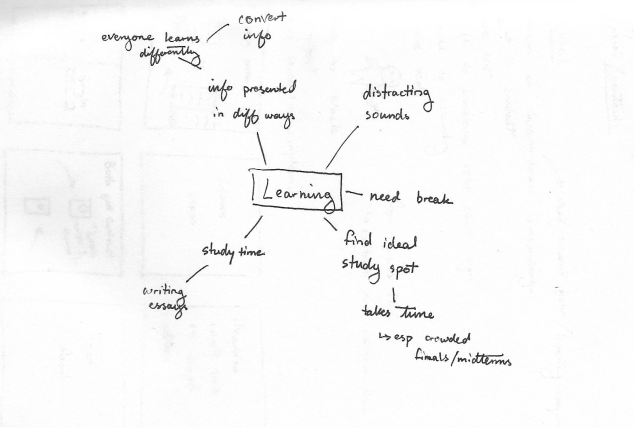 convert
info
everyone learns
differently
info presented
in diff ways
distracting
sounds
Learning
need break
study time
find ideal
study spot
writing
essays
takes time
↳ esp crowded
finals/midterms